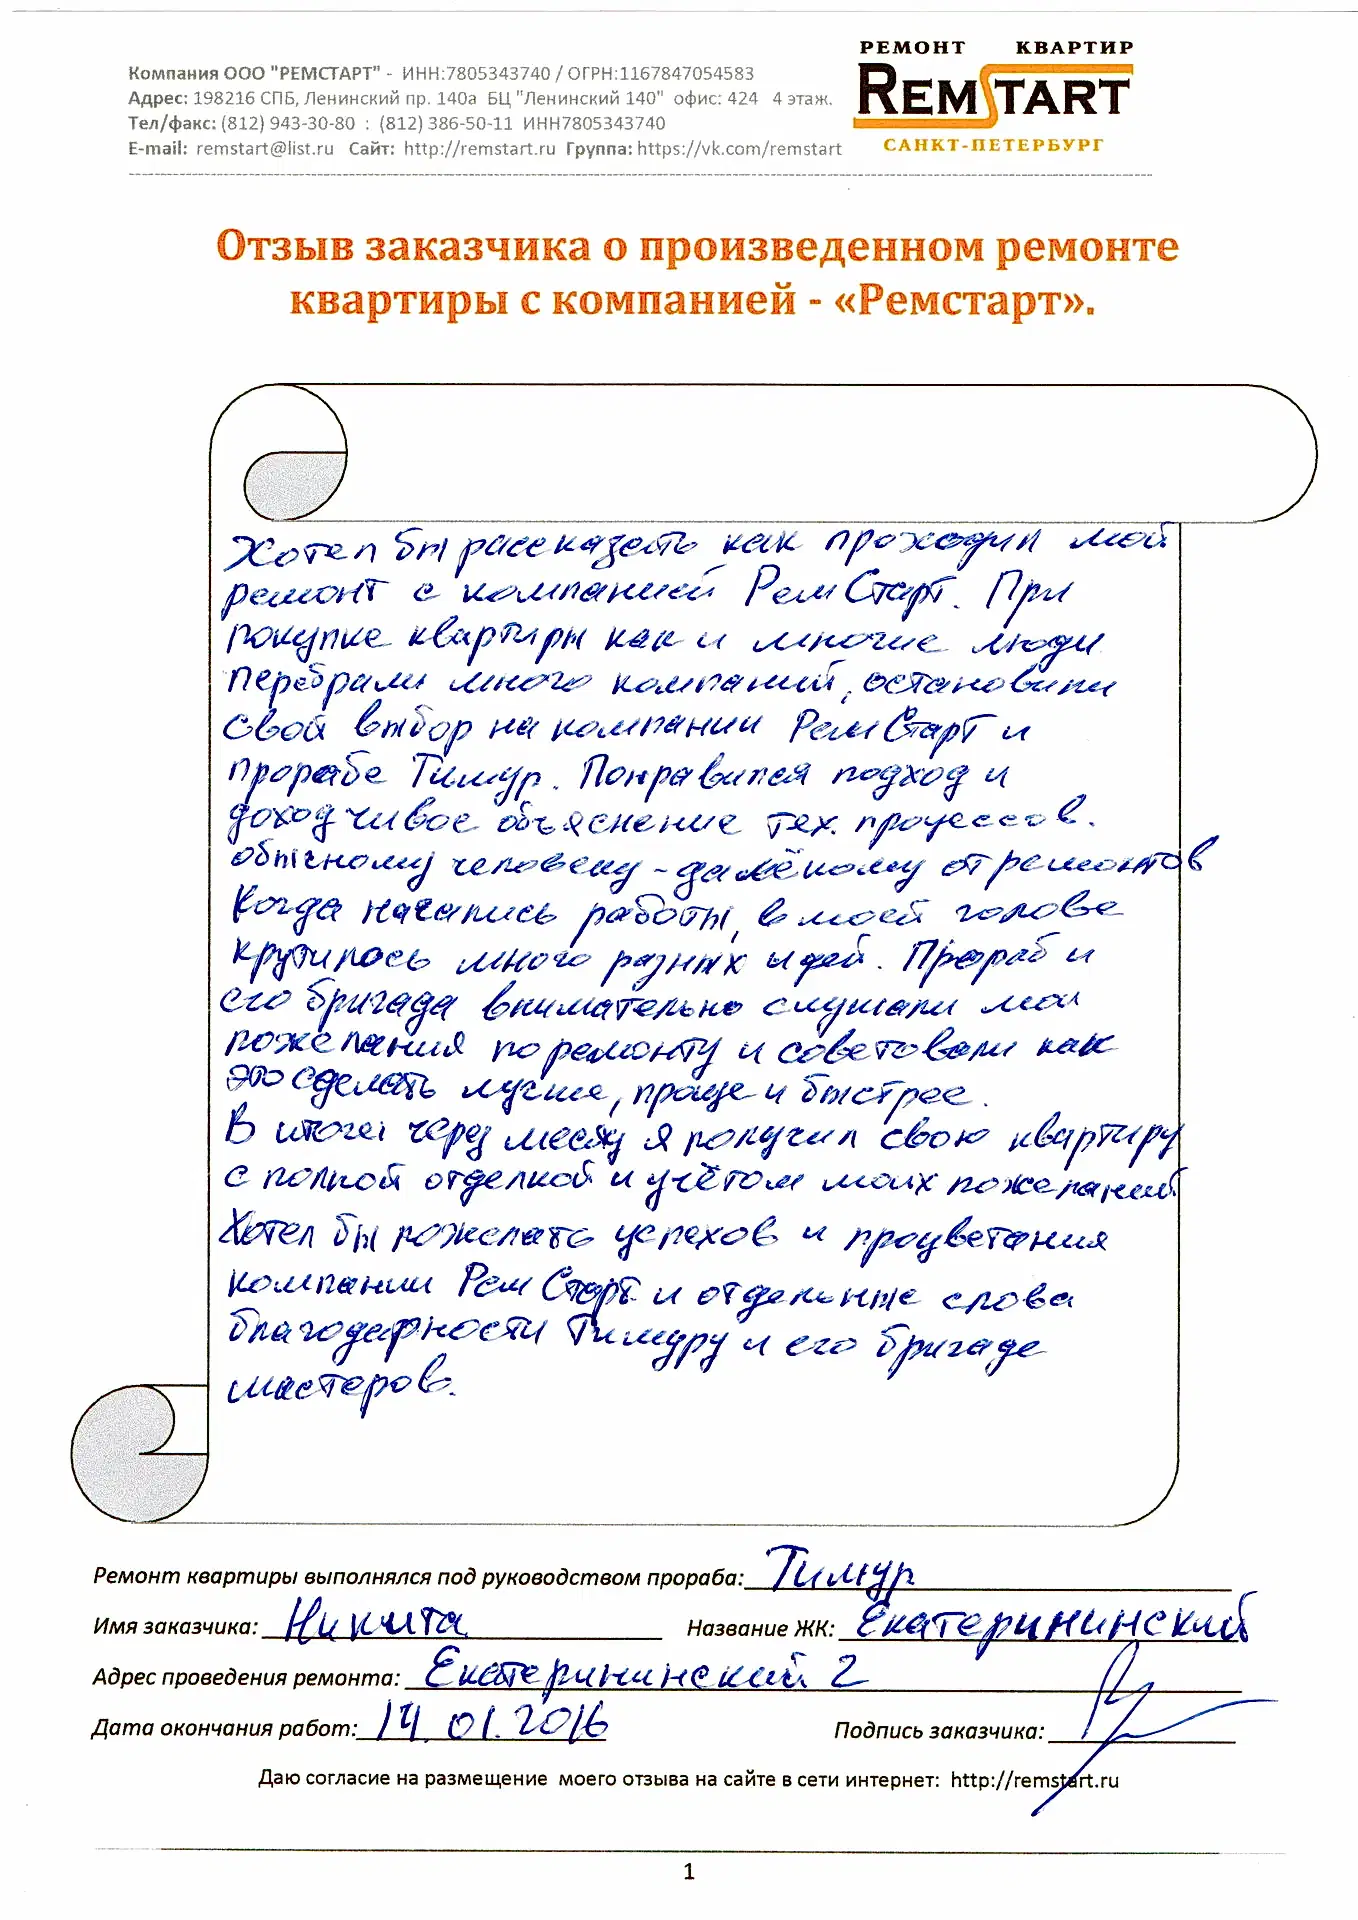 Компания ООО "РЕМСТАРТ" - ИНН:7805343740 / ОГРН:1167847054583
Адрес: 198216 СПБ, Ленинский пр. 140а БЦ "Ленинский 140" офис: 424 4 этаж.
Тел/факс: (812) 943-30-80 : (812) 386-50-11 ИНН7805343740
E-mail: remstart@list.ru Сайт: http://remstart.ru Группа: https://vk.com/remstart
РЕМОНТ КВАРТИР
REMSTART
САНКТ-ПЕТЕРБУРГ
Отзыв заказчика о произведенном ремонте
квартиры с компанией - «Ремстарт».
Хотел бы рассказать как проходил мой
ремонт с компанией РемСтарт. При
покупке квартиры как и многие люди
перебрали много компаний, остановили
свой выбор на компании РемСтарт и
прорабе Тимур. Понравился подход и
доходчивое объяснение тех. процессов.
обычному человеку - далёкому от ремонтов
Когда начались работы, в моей голове
крутилось много разных идей. Прораб и
его бригада внимательно слушали мои
пожелания по ремонту и советовали как
это сделать лучше, проще и быстрее.
В итоге через месяц я получил свою квартиру
с полной отделкой и учётом моих пожеланий
Хотел бы пожелать успехов и процветания
компании Рем Старт и отдельные слова
благодарности Тимуру и его бригаде
мастеров.
Ремонт квартиры выполнялся под руководством прораба: Тимур
Имя заказчика: Никита Название ЖК: Екатерининский
Адрес проведения ремонта: Екатерининский 2
Дата окончания работ: 14.01.2016 Подпись заказчика:
Даю согласие на размещение моего отзыва на сайте в сети интернет: http://remstart.ru
1